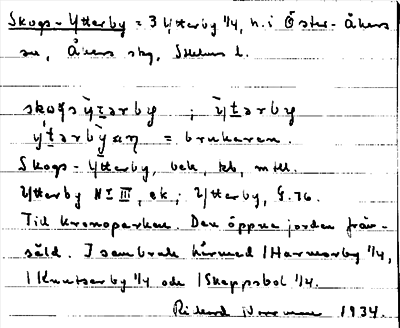 Skogs-Ytterby = 3 Ytterby 1/4, h. i Öster-Åkers
sn, Åkers skg, Sthlms l.
skog̀s ỳtərby ; ỳtərby
ỳtərbỳaη = brukaren.
Skogs-Ytterby, bek, kb, mtl.
Ytterby No III, ek; Ytterby, G. 76.
Till kronoparken. Den öppna jorden från-
såld. I sambruk härmed 1 Harmorby 1/4,
1 Knutserby 1/4 och 1 Skeppsbol 1/4.
Rikard 1934.